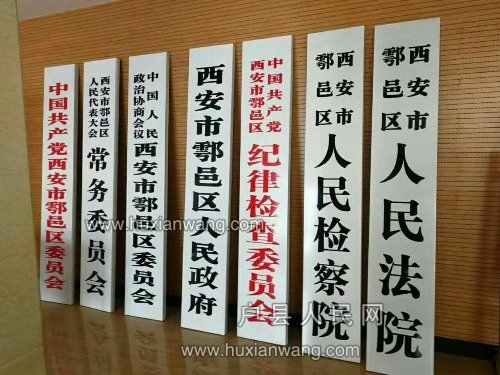 中国共产党西安市鄠邑区委员会
西安市鄠邑区
人民代表大会
常务委员会
中国人民
政治协商会议
西安市鄠邑区委员会
西安市鄠邑区人民政府
中国共产党
西安市鄠邑区
纪律检查委员会
西安市
鄠邑区
人民检察院
西安市
鄠邑区
人民法院
www.huxianwang.com
户县人民网
www.huxianwang.com